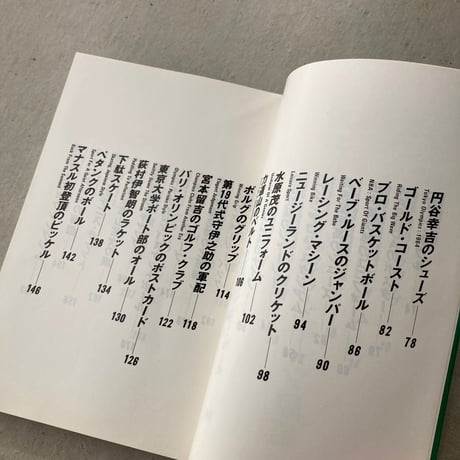 円谷幸吉のシューズ 78
Tokyo Olympics: 1964
ゴールド・コースト 82
Riding The Big Wave
プロ・バスケットボール 86
NBA: Sport Of Giants
ベーブ・ルースのジャンパー 90
Waiting For The Babe
レーシング・マシーン 94
Winning Bike
ニュージーランドのクリケット 98
Leisure Sport
水原茂のユニフォーム 102
力道山のベルト
ボルグのグリップ 106
第19代式守伊之助の軍配 114
宮本留吉のゴルフ・クラブ 118
パリ・オリンピックのポストカード 122
東京大学ボート部のオール 126
荻村伊智朗のラケット 130
下駄スケート 134
ペタンクのボール 138
マナスル初登頂のピッケル 142
146